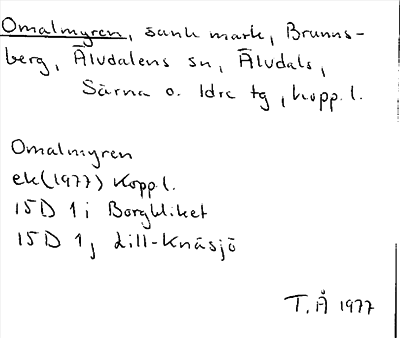 Omalmyren, sank mark, Brunns-
berg, Älvdalens sn, Älvdals,
Särna o. Idre tg, Kopp. l.
Omalmyren
ek (1977) Kopp l.
15D 1i Borgkliket
15D 1j Lill-Knäsjö
T.Å 1977